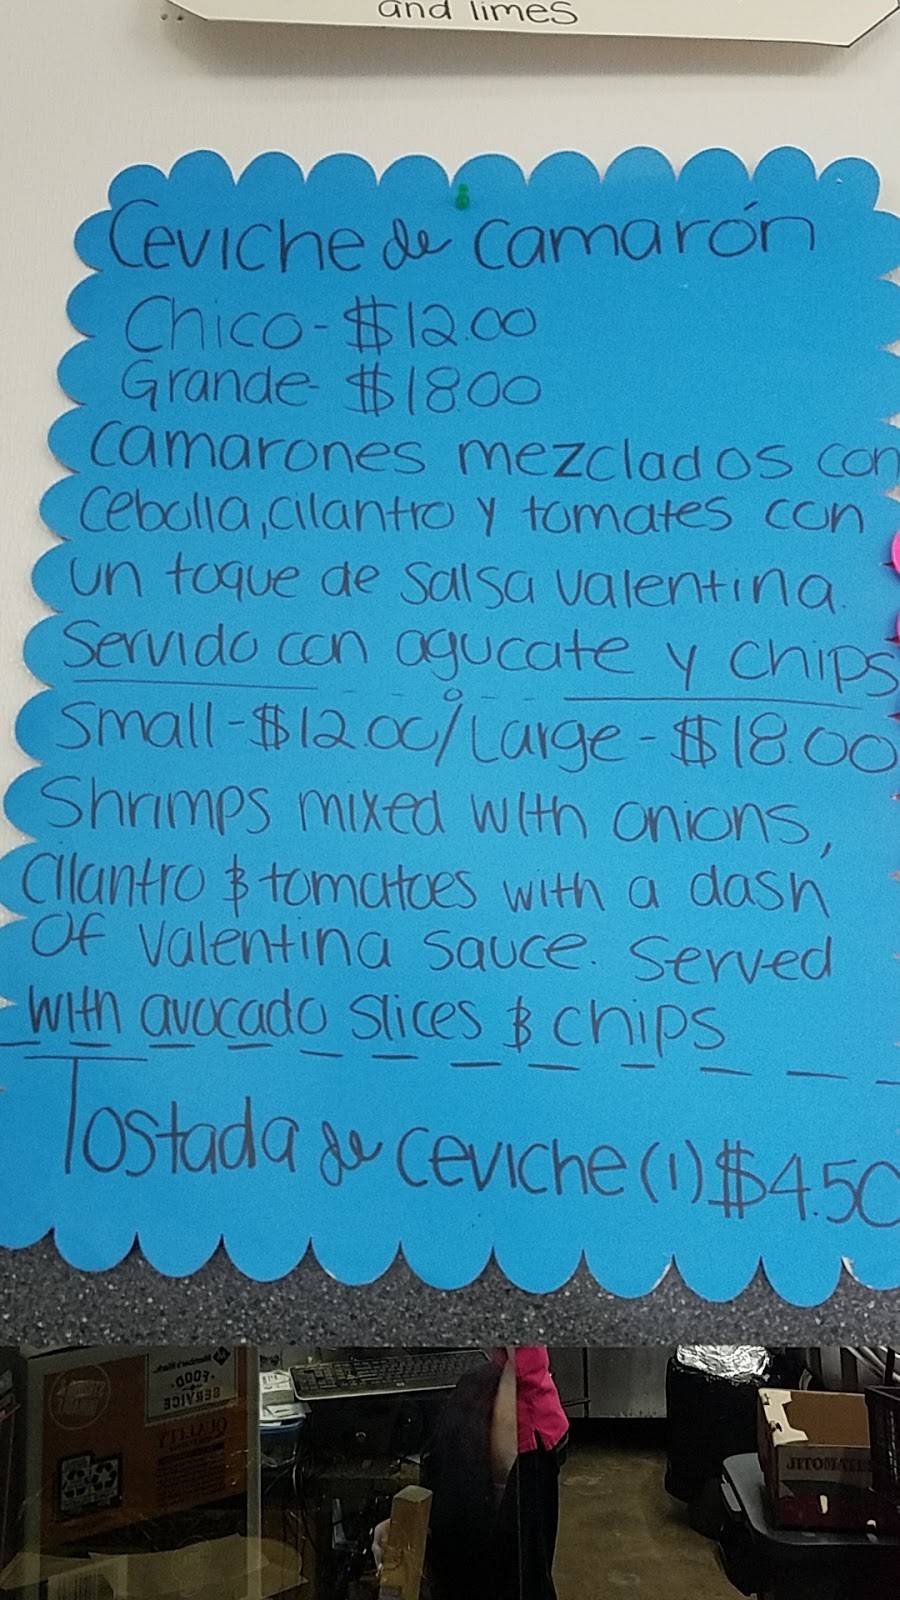 and limes
Ceviche de camarón
Chico - $12.00
Grande - $18.00
Camarones mezclados con
cebolla, cilantro y tomates con
un toque de salsa valentina.
Servido con agucate y chips
Small - $12.00 / Large - $18.00
Shrimps mixed with onions,
cilantro & tomatoes with a dash
of valentina sauce. Served
with avocado slices & chips
Tostada de ceviche (1) $4.50
Member's Mark
FOOD
SERVICE
QUALITY
JITOMATE